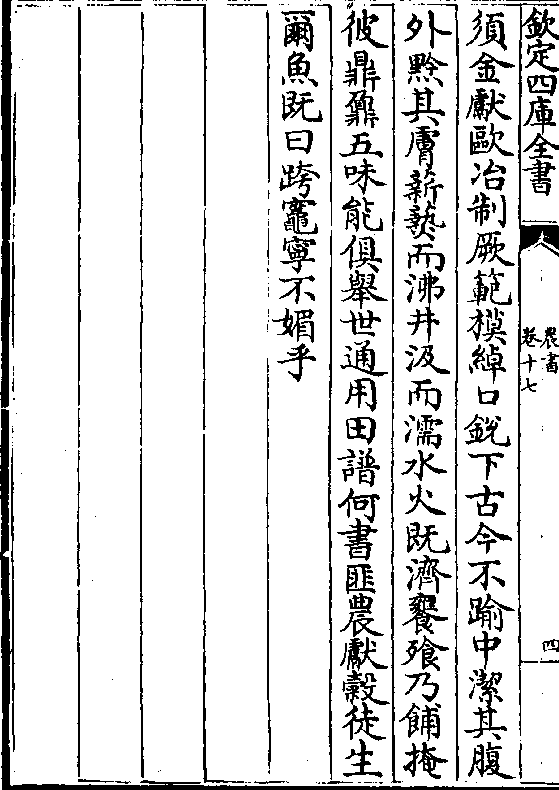 欽定四庫全書
農書
卷十七
四
須金獻歐冶制厥範模綽口銳下古今不踰中潔其腹
外黔其膚薪爇而沸井汲而濡水火既濟饔飱乃餔掩
彼鼎鼐五味能俱舉世通用田譜何書匪農獻穀徒生
爾魚既曰跨竈寧不媚乎